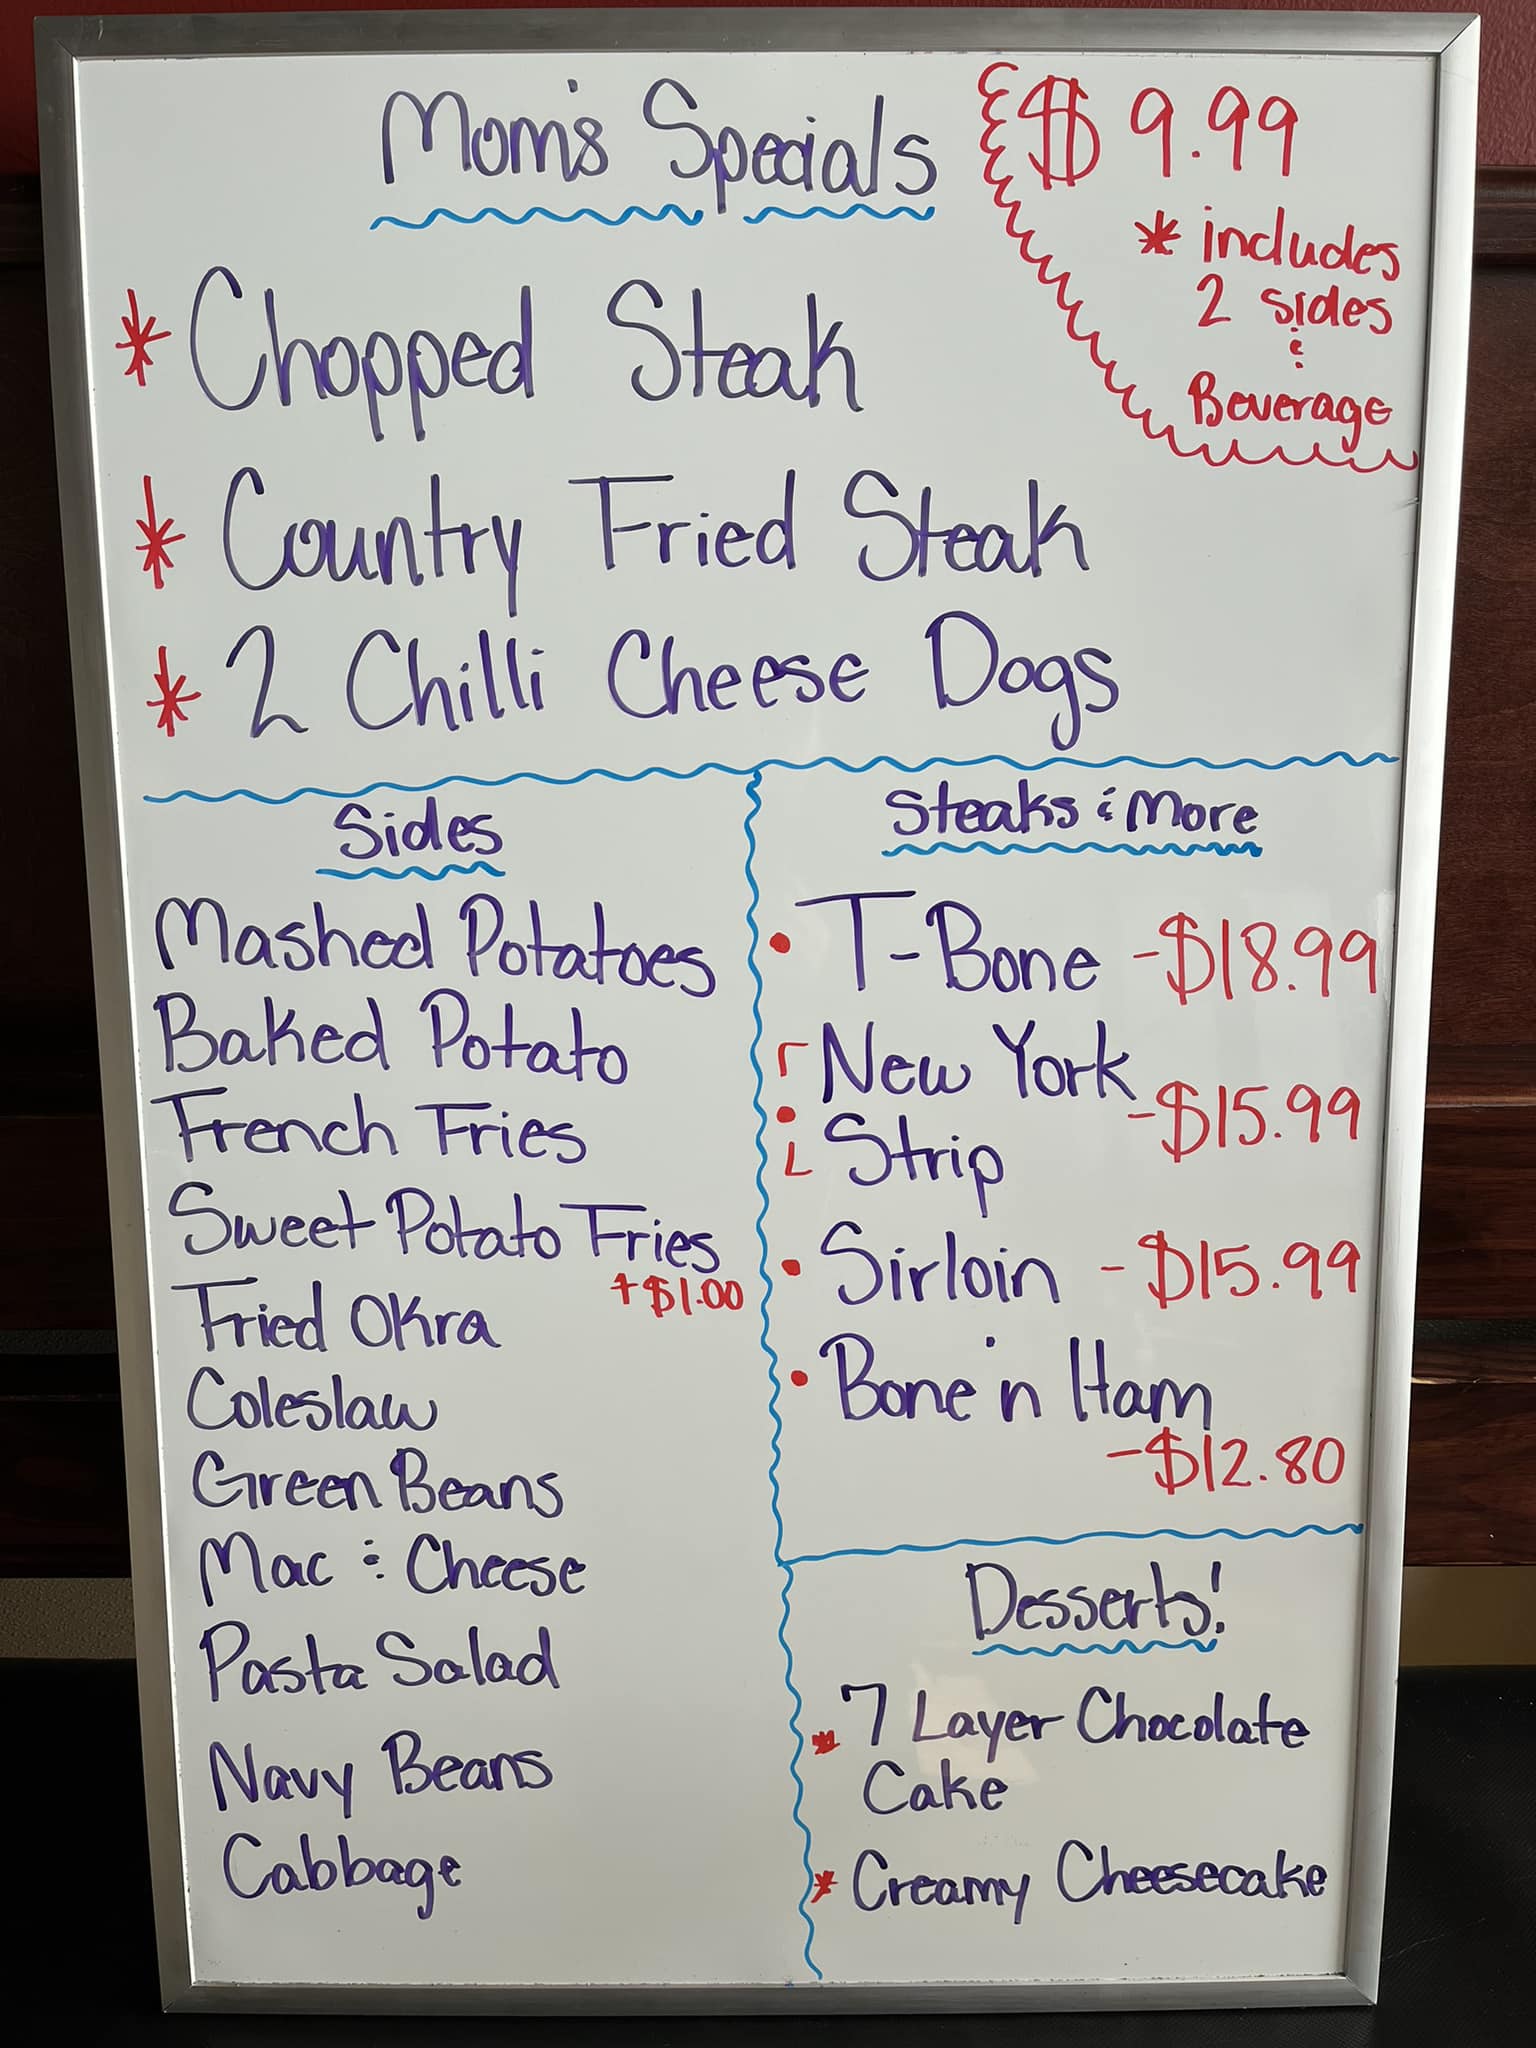 Mom's Specials
$9.99
* includes
2 sides
&
Beverage
* Chopped Steak
* Country Fried Steak
* 2 Chilli Cheese Dogs
Sides
Mashed Potatoes
Baked Potato
French Fries
Sweet Potato Fries
+$1.00
Fried Okra
Coleslaw
Green Beans
Mac & Cheese
Pasta Salad
Navy Beans
Cabbage
Steaks & More
• T-Bone -$18.99
• New York
Strip -$15.99
• Sirloin -$15.99
• Bone 'n Ham
-$12.80
Desserts!
* 7 Layer Chocolate
Cake
* Creamy Cheesecake